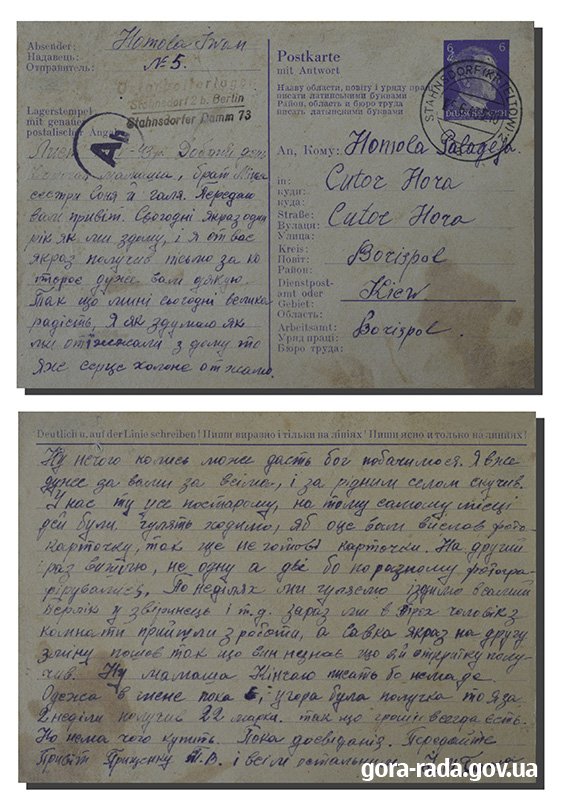 Absender:
Надавець:
Отправитель:
Homola Iwan
№ 5.
Lagerstempel
mit genauer
postalischer Ang
Stahnsdorf 2 b. Berlin
Stahnsdorfer Damm 73
Postkarte
mit Antwort
Назву области, повіту і уряду праці
писати латинськими буквами
Район, область и бюро труда
писать латынскими буквами
6
6
An, Кому: Homola Palageja
in:
куди:
куда:
Cutor Hora
Straße:
Вулаця:
Улица:
Cutor Hora
Kreis:
Повіт:
Район:
Borispol
Dienstpost-
amt oder
Gebiet:
Область:
Kiew
Arbeitsamt:
Уряд праці:
Бюро труда:
Borispol.
мамаши, брат Міша
сестри Соня й галя. Передаю
вам привіт. Сьогодні якраз один
рік як ми здому, і я от вас
якраз получив письмо за ко
торое дуже вам дякую.
Так що мині сьогодні велика
радість, Я як здумаю як
ми отїжжали з дому то
аже серце холоне от жалю.
Deutlich u. auf der Linie schreiben! Пиши виразно і тільки на лініях! Пиши ясно и только на линиях!
Ну нечого колись може дасть бог побачимося. Я вже
дуже за вами за всіма, і за рідним селом скучив.
У нас ту усе постарому, на тому самому місці
дей були. гулять ходимо, яб оце вам вислав фото-
карточку, так ще не готові карточки. На другий
раз вишлю, не одну а дві бо поразному фотогра-
фірувались. По неділях ми гуляємо їздимо всамий
берлік у звіринець і т.д. зараз ми в трох чоловік з
комнати прийшли з роботи, а савка якраз на другу
зміну пошов так що він незнає що я открітку полу-
чив. Ну мамаша Кінчаю писать бо немаде.
Одежа в мене пока є, учора була получка то я за
2 неділи получив 22 марка. так що гроші всегда єсть.
Но нема чого купить. Пока досвіданіз. Передайте
Привіт Грищенку П.В. і всім остальним.
gora-rada.gov.ua